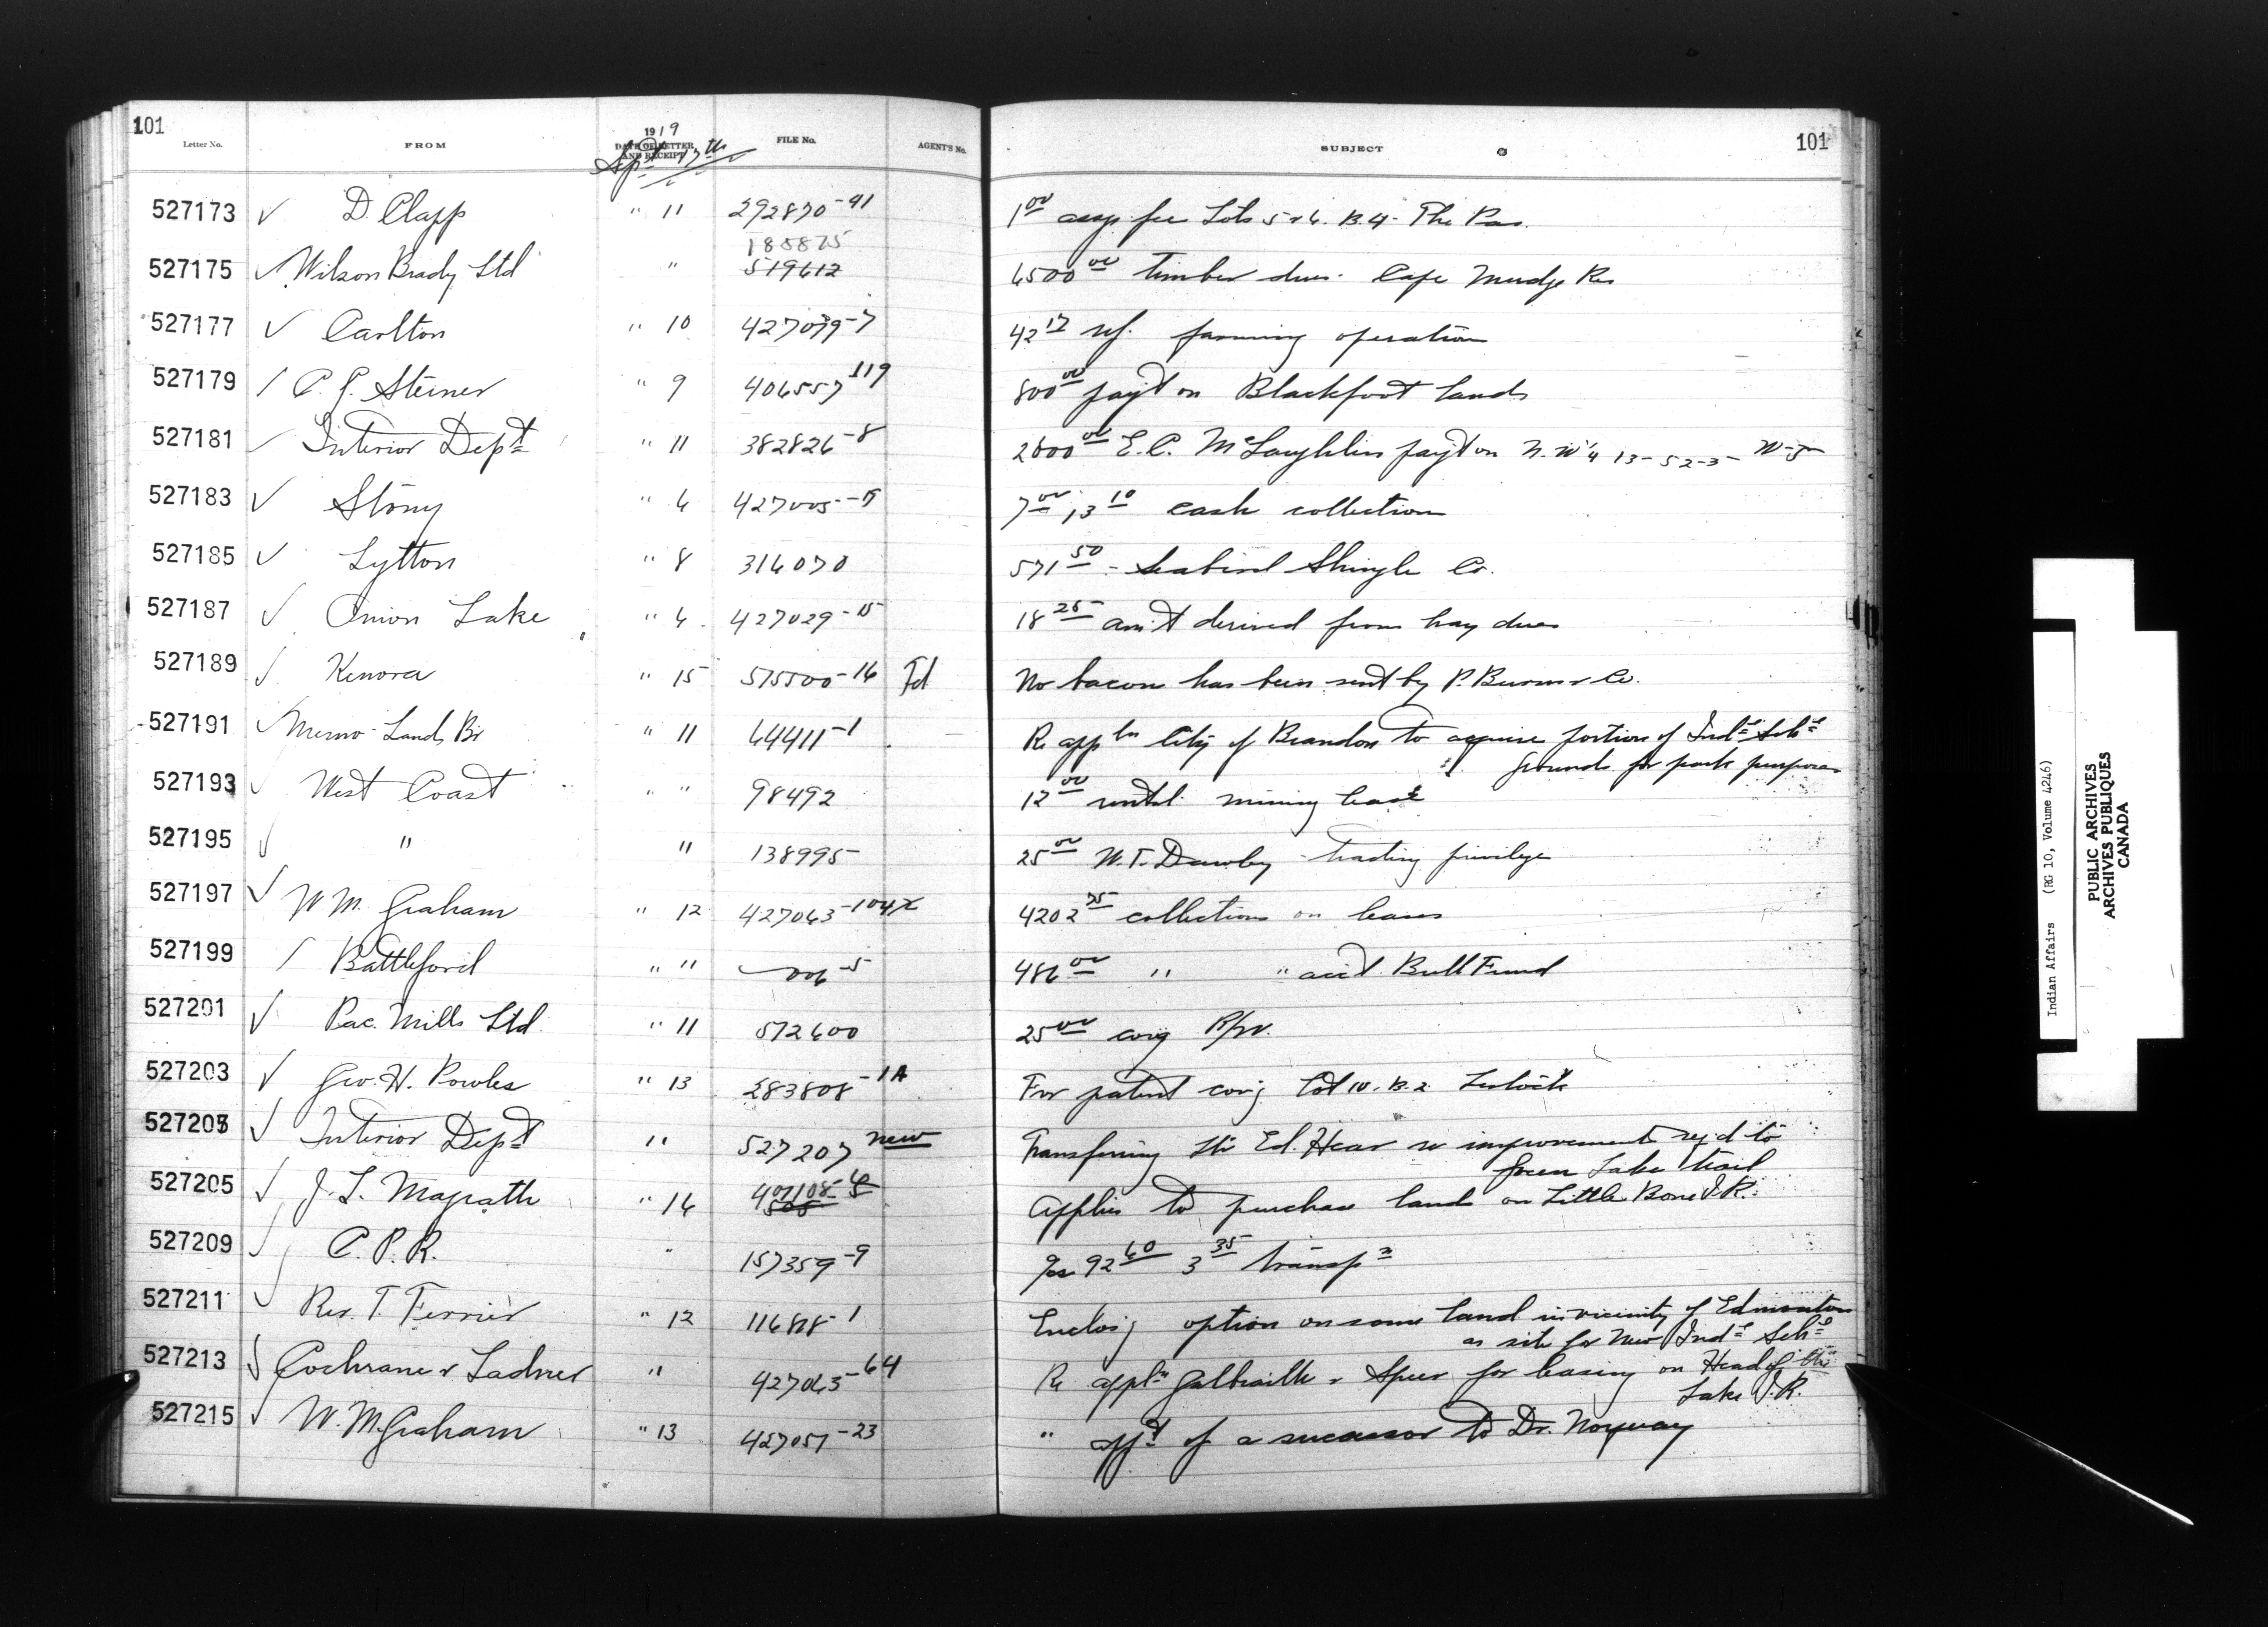 101 101
Letter No. FROM 1919 DATE OF LETTER AND RECEIPT FILE No. AGENT'S No. SUBJECT
Sept 17th
527173 ✓ D. Clapp " 11 292870-91 1.00 assgt fee Lots 5 & 6. B.4- The Pas.
185875
527175 ✓ Wilson Brady Ltd " 519612 6500.00 timber dues. Cape Mudge Res
527177 ✓ Carlton " 10 427039-7 42.17 ref. farming operation
527179 / C. J. Steiner " 9 406557-119 800.00 payt on Blackfoot lands
527181 / Interior Dept " 11 382826-8 2800.00 E.C. McLaughlin payt on N.W¼ 13-52-3- W-5-
527183 ✓ Stony " 6 427005-15 7.00, 13.10 cash collection
527185 ✓ Lytton " 8 316070 571.50 - Seabird Shingle Co.
527187 ✓ Onion Lake " 6 427029-15 18.25 am't derived from hay dues
527189 ✓ Kenora " 15 575500-16 Fd No bacon has been sent by P. Burns & Co.
527191 ✓ Memo-Lands Br " 11 64411-1 Re appln City of Brandon to acquire portion of Indl Schl
grounds for park purposes
527193 ✓ West Coast " " 98492 12.00 rental mining lease
527195 ✓ " " 138995 25.00 W.T. Dawley trading privilege
527197 ✓ W M. Graham " 12 427063-104X 4202.75 collections on leases
527199 / Battleford " " 006-5 486.00 " " acct Bull Fund
527201 ✓ Pac. Mills Ltd. " 11 572600 25.00 covg R/W.
527203 ✓ Geo. H. Powles " 13 283808-1A For patent covg Lot 10. B.2 Lestock
527207 ✓ Interior Dept " 527207 new Transferring ltr Ed. Hear re improvements req'd to
Green Lake trail
527205 ✓ J. L. Magrath " 16 407108-6 Applies to purchase lands on Little Bone I.R.
527209 ✓ C. P. R. " 157359-9 for 92.60 3.35 transpn
527211 ✓ Rev. T. Ferrier " 12 116818-1 Enclos'g option on some land in vicinity of Edmonton
as site for New Indl Schl
527213 ✓ Cochrane & Ladner " 427065-64 Re appln Galbraith & Speer for leasing on Head of the
Lake I.R.
527215 ✓ W. M. Graham " 13 427051-23 " appt of a successor to Dr. Norquay
Indian Affairs (RG 10, Volume 4246)
PUBLIC ARCHIVES
ARCHIVES PUBLIQUES
CANADA